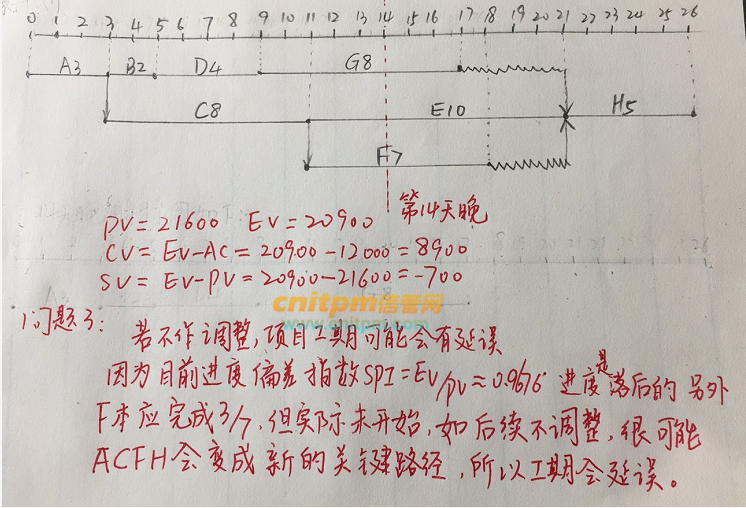 0 1 2 3 4 5 6 7 8 9 10 11 12 13 14 15 16 17 18 19 20 21 22 23 24 25 26
A3 B2 D4 G8
C8 E10 H5
F7
第14天晚
PV=21600 EV=20900
CV=EV-AC=20900-12000=8900
SV=EV-PV=20900-21600=-700
cnitpm信管网
www.cnitpm.com
问题3:
若不作调整,项目工期可能会有延误
因为目前进度偏差指数SPI=EV/PV≈0.9676 进度是落后的 另外
F本应完成3/7,但实际未开始,如后续不调整,很可能
ACFH会变成新的关键路径,所以工期会延误。